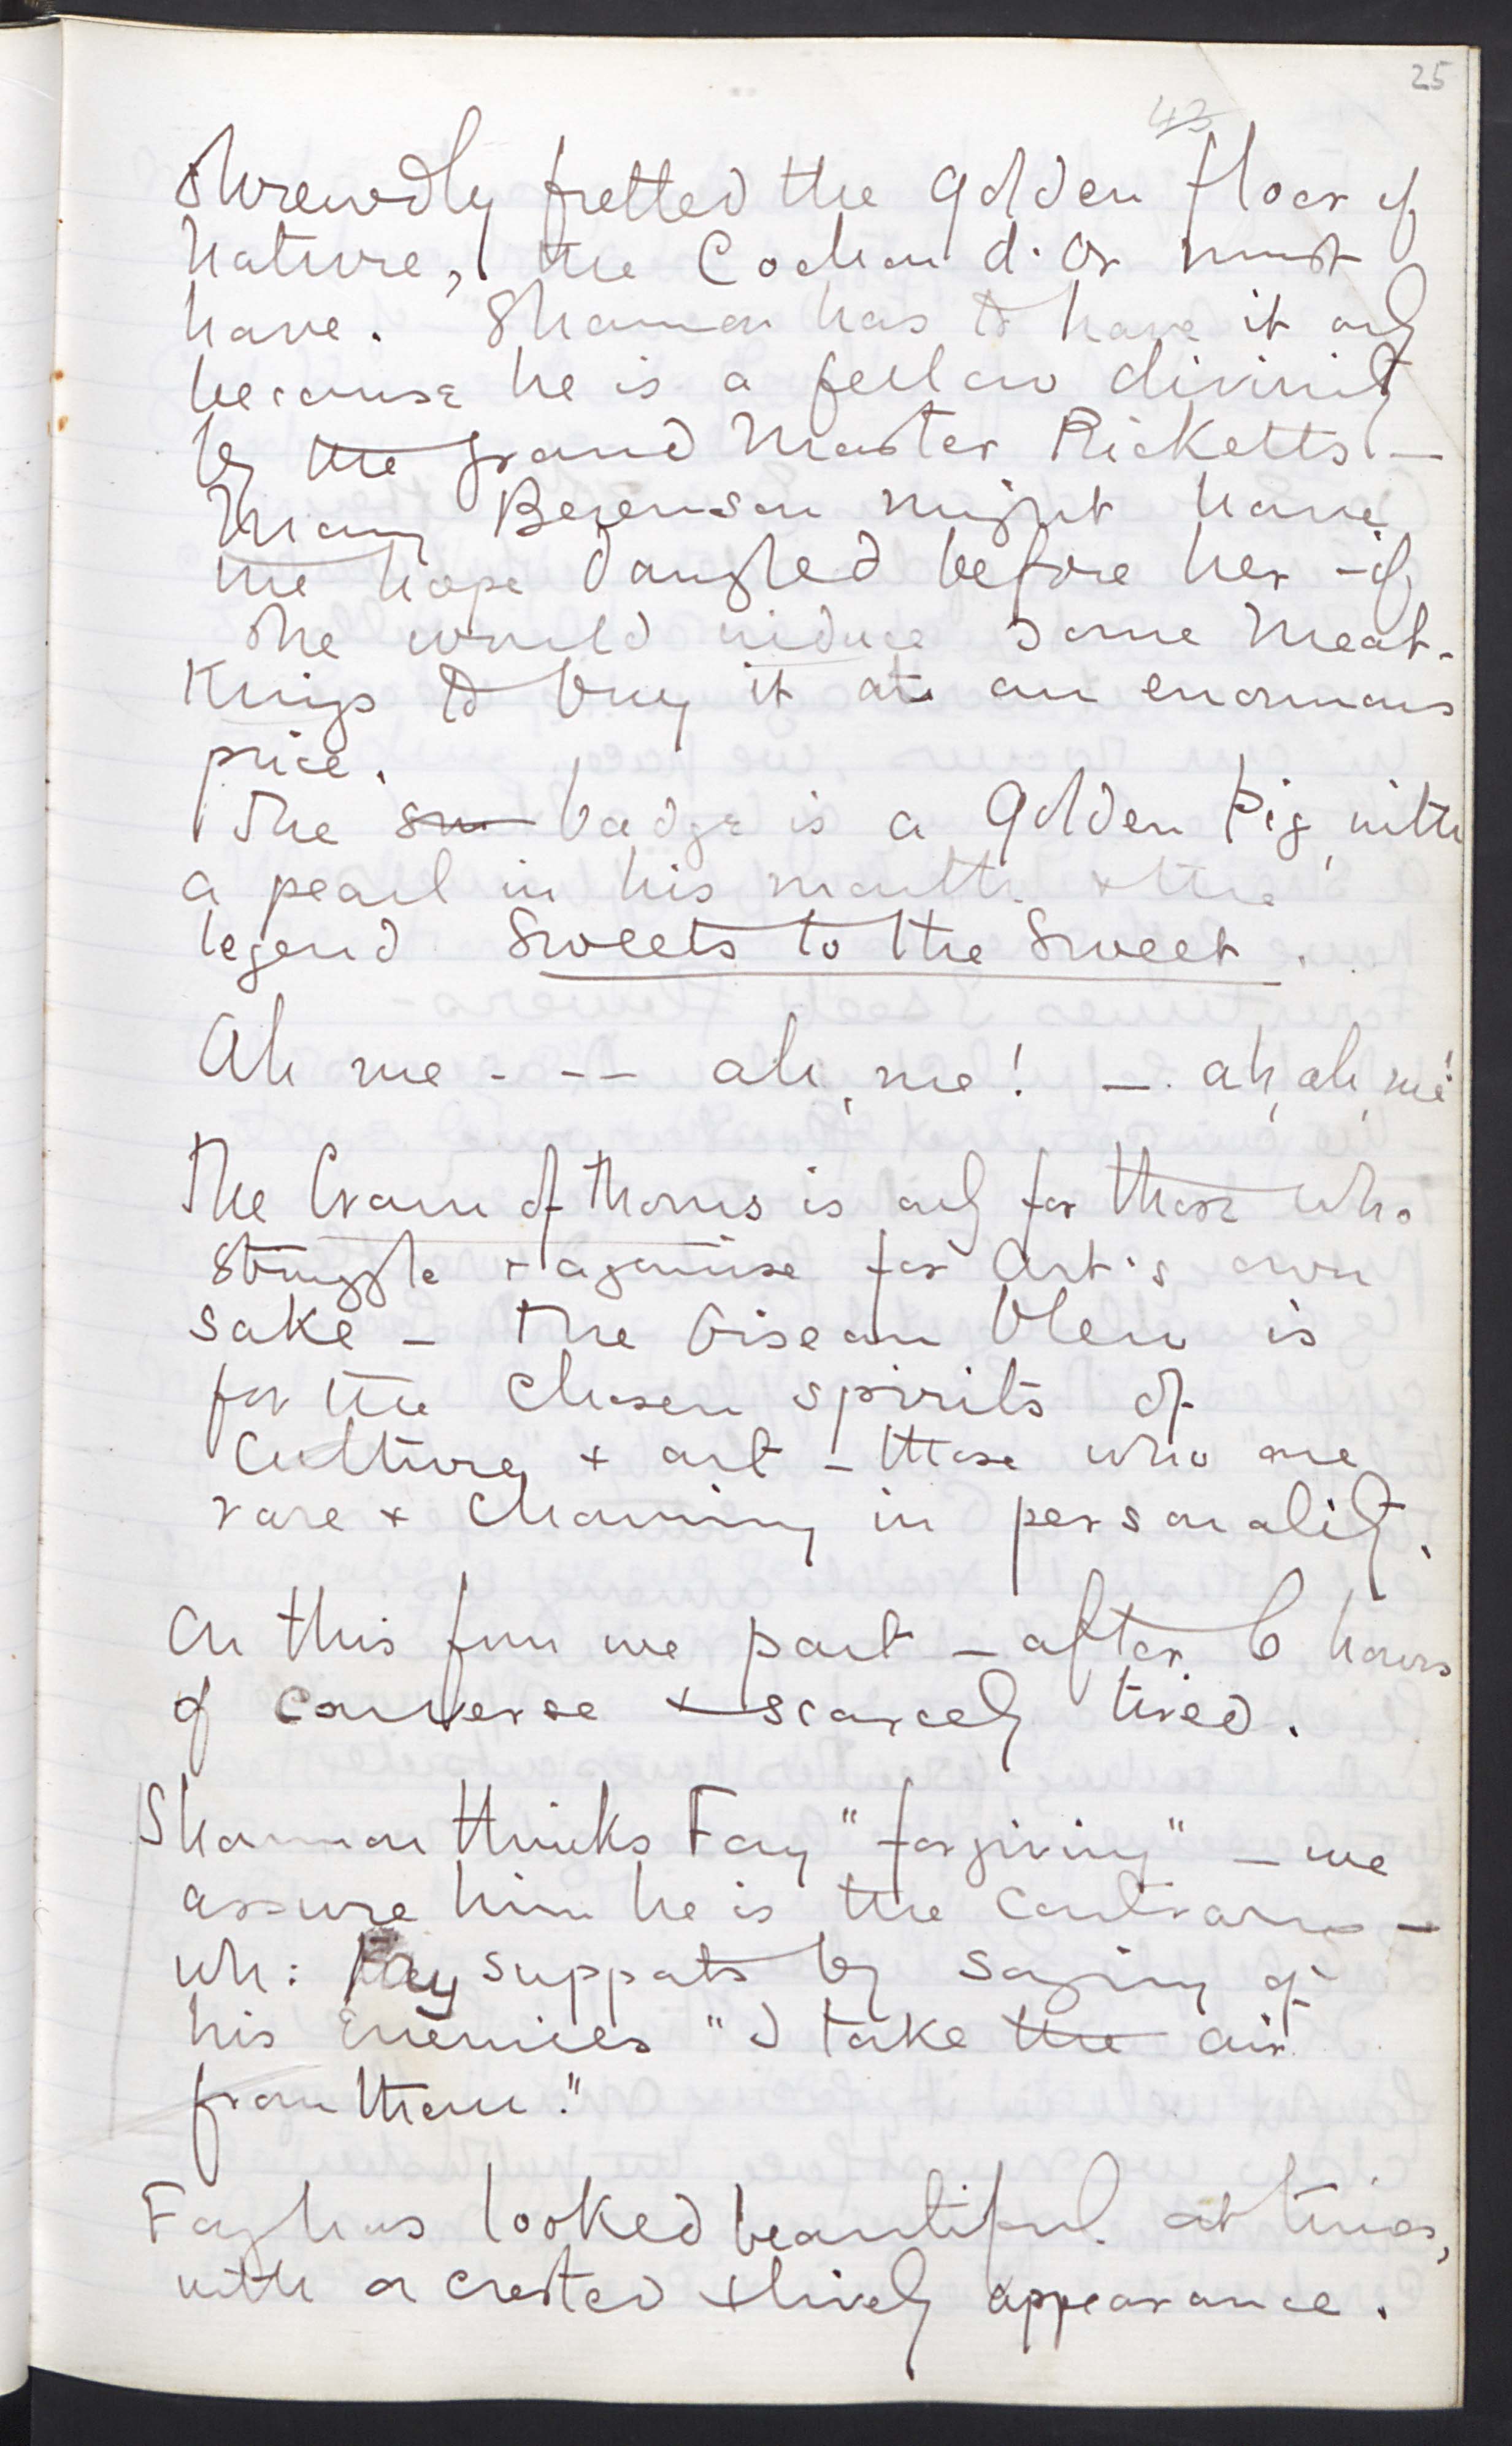 25
43
shrewdly fretted the golden floor of
nature, the Cochon d'or must
have. Shannon has to have it only
because he is a fellow divinity
by the grand Master Ricketts —
Mary Berenson might have
the hope dangled before her – if
she would induce some Meat-
Kings to buy it at an enormous
price.
The badge is a golden Pig, with
a pearl in his mouth & the
legend Sweets to the Sweet.
Ah me - -- ah, me! — ah, ah, me!
The Crown of Thorns is only for those who
struggle & agonise for Art's own
sake – The Oiseau bleu is
for the chosen spirits of
Culture & art – those who are
rare & charming in personality.
On this fun we part – after 6 hours
of converse & scarcely tired.
Shannon thinks Fay "forgiving" – we
assure him he is the contrary –
wh: Fay supports by saying of
his enemies "I take the air
from them."
Fay has looked beautiful at times,
with a crested & lively appearance.